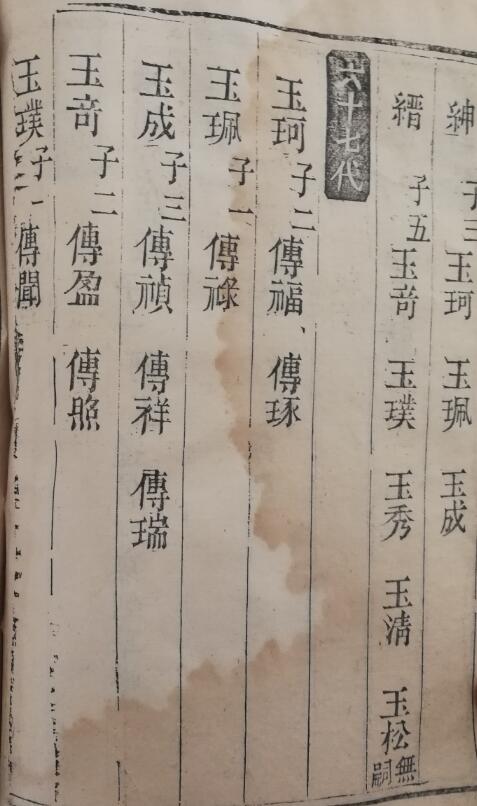 紳 子三 玉珂 玉珮 玉成
縉 子五 玉竒 玉璞 玉秀 玉清 玉松 無嗣
六十七代
玉珂 子二 傳福、傳琢
玉珮 子一 傳祿
玉成 子三 傳禎 傳祥 傳瑞
玉竒 子二 傳盈 傳煕
玉璞 子一 傳聞